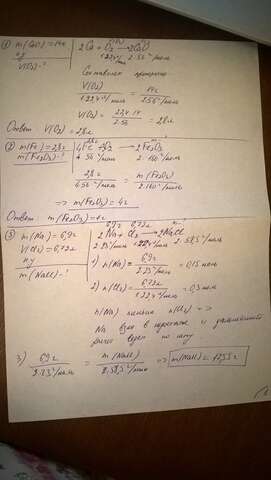 ① m(CaO)=14г
н.у
V(O₂)-?
2Ca + O₂ → 2CaO
1·22,4 л/моль 2·56 г/моль
Составляем пропорцию
V(O₂) / 1·22,4 л/моль = 14г / 2·56 г/моль
V(O₂) = 22,4·14 / 2·56 = 2,8л
Ответ V(O₂) = 2,8л
② m(Fe)=2,8г
m(Fe₂O₃)-?
4Fe + 3O₂ → 2Fe₂O₃
4·56 г/моль 2·160 г/моль
2,8г / 4·56 г/моль = m(Fe₂O₃) / 2·160 г/моль
=> m(Fe₂O₃) = 4г
Ответ m(Fe₂O₃)=4г
③ m(Na)=6,9г
V(Cl₂)=6,72л
н.у
m(NaCl)-?
6,9г 6,72л m-?
2Na + Cl₂ → 2NaCl
2·23 г/моль 1·22,4 л/моль 2·58,5 г/моль
1) n(Na)= 6,9г / 2·23 г/моль = 0,15 моль
2) n(Cl₂)= 6,72л / 1·22,4 л/моль = 0,3 моль
n(Na) меньше n(Cl₂) =>
Na взят в и дальнейший
расчет ведем по нему
3) 6,9г / 2·23 г/моль = m(NaCl) / 2·58,5 г/моль => m(NaCl) = 17,55г